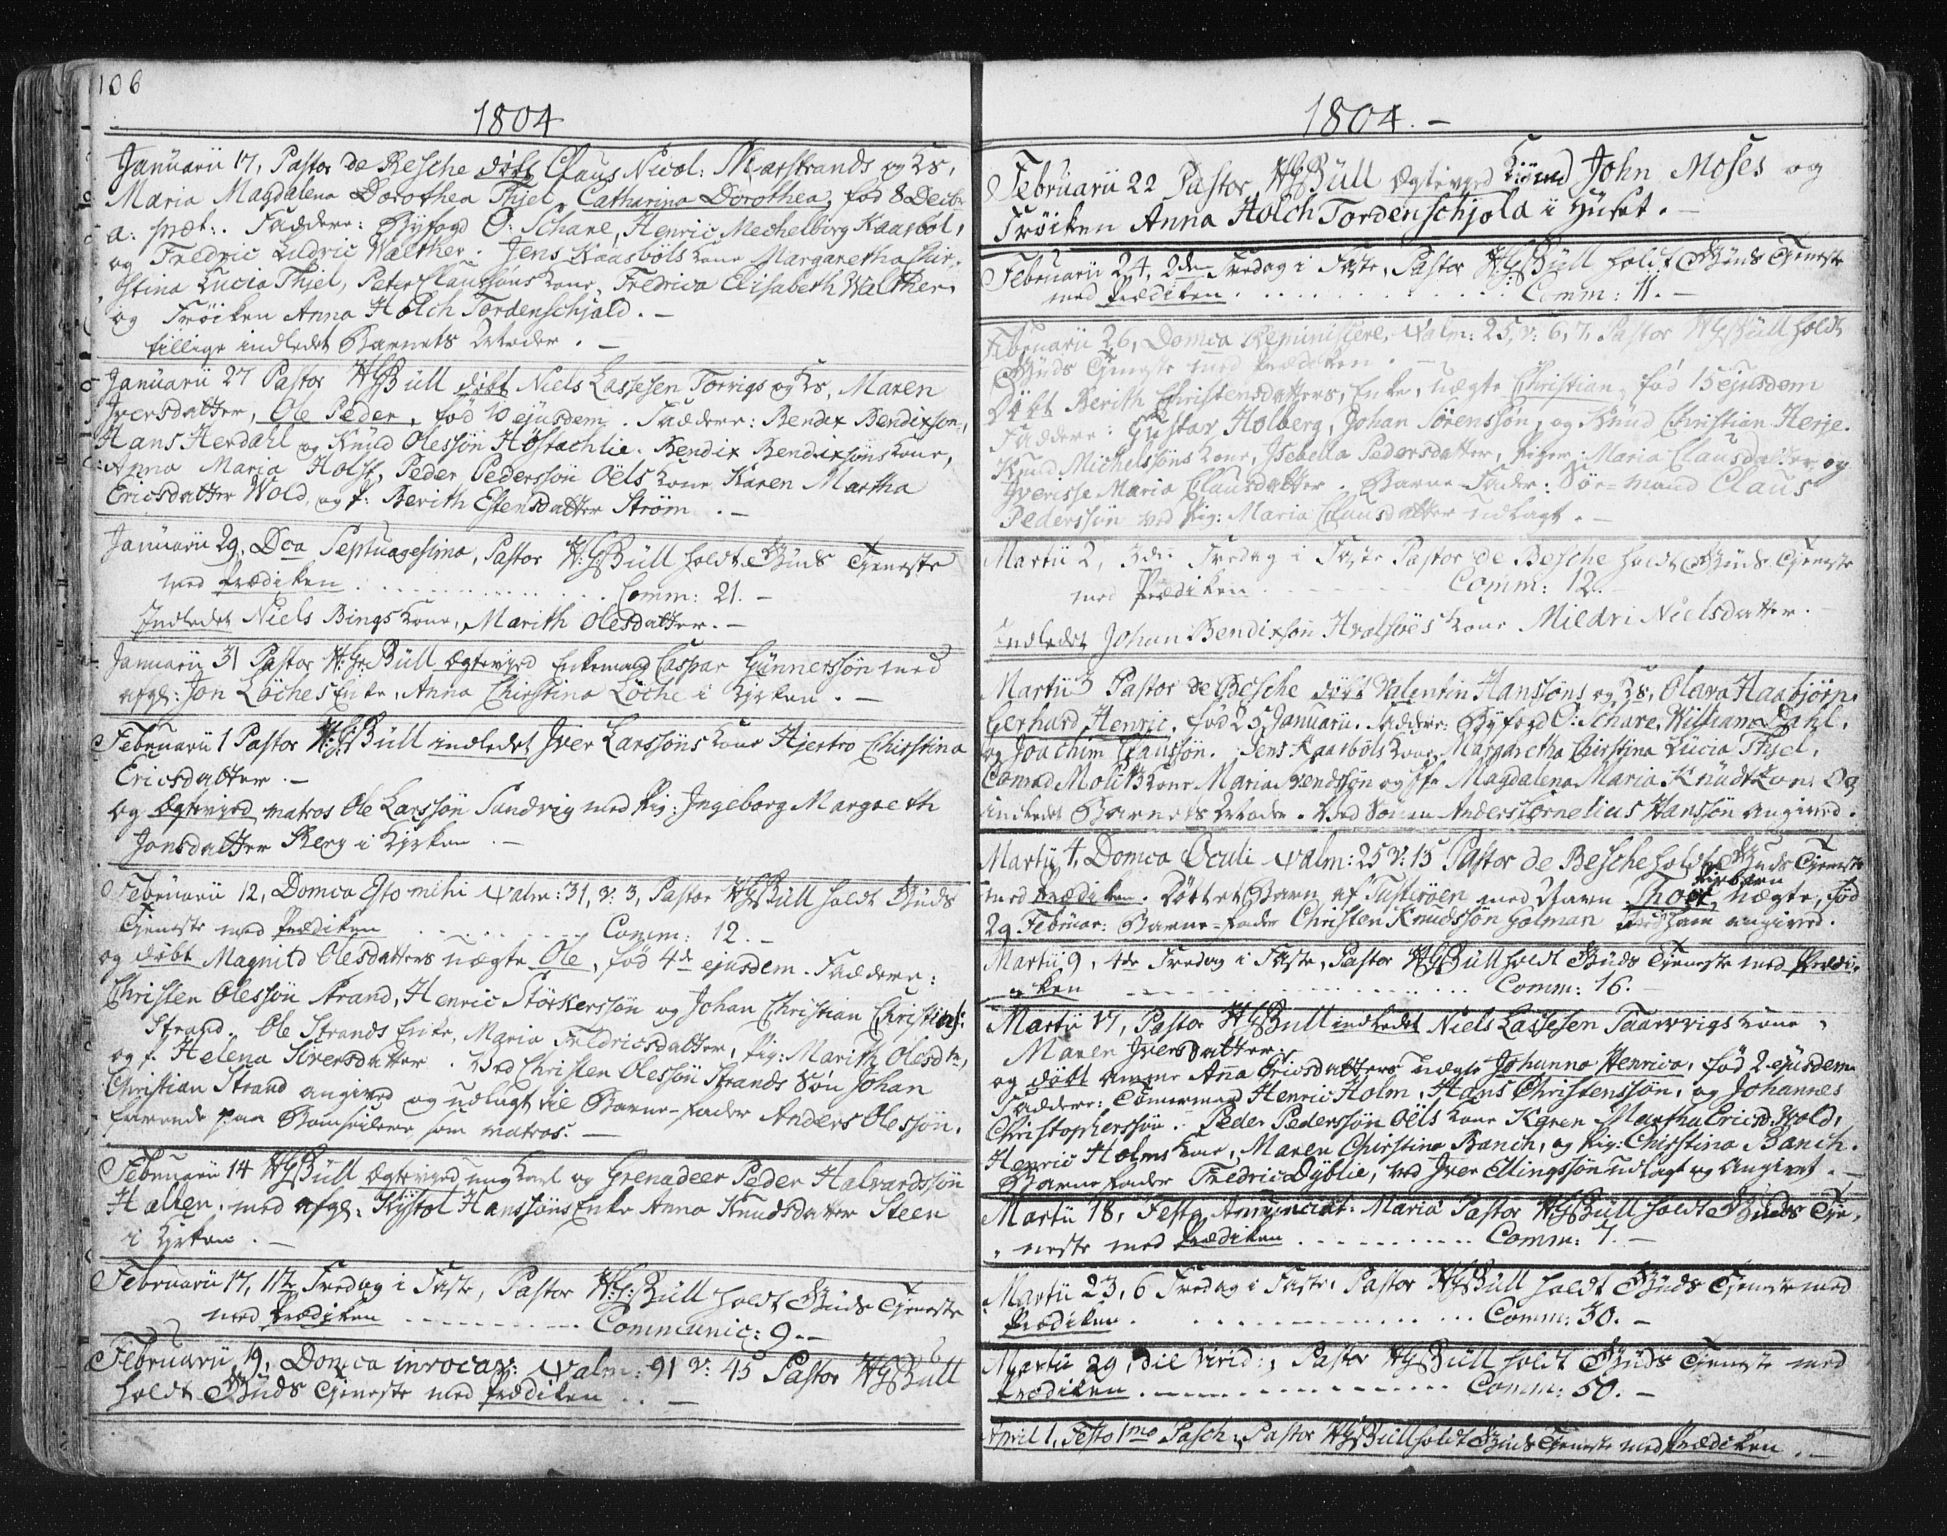 106
1804
Januarii 17, Pastor de Besche døbt Claus Nicol: Marstrands og Hs,
Maria Magdalena Dorothea Thjel, Catharina Dorothea, fød 8 Decbr
a: præt:. Faddere: Byfogd O: Schare, Henric Mechelborg Kaasbøl,
og Fredric Ludric Walther. Jens Kaasbøls Kone Margaretha Chir-
stina Lucia Thjel, Peter Claussøns Kone, Fredrica Elisabeth Walther,
og Frøiken Anna Holch Tordenschjold. -
tillige indledet Barnets Moder. -
Januarii 27 Pastor HGBüll døbt Niels Lassesen Torrigs og Hs, Maren
Iversdatter, Ole Peder, fød 10 ejusdem. Faddere: Bendix Bendixsøn,
Hans Herdahl og Knud Olessøn Høstachlie. Bendix Bendixsøns Kone,
Anna Maria Holst, Peder Pederssøn Øels Kone Karen Martha
Ericsdatter Wold, og p: Berith Estensdatter Strøm. -
Januarii 29, Dca Septuagesima, Pastor H:G:Büll holdt Guds Tjeneste
med Prædiken . . . . . Comm: 21. -
Indledet Niels Bings Kone, Marith Olesdatter. -
Januarii 31 Pastor H:G:Büll Ægtevied Enkemand Caspar Gunnerssøn med
afgl: Jon Løches Enke, Anna Chirstina Løche i Kirken. -
Februarii 1 Pastor H:G:Büll indledet Iver Larssøns Kone Hjertro Chirstina
Ericsdatter. -
og Ægteviet matros Ole Larssøn Sundvig med Pig: Ingeborg Margreth
Jonsdatter Berg i Kirken. -
Februarii 12, Domca Esto mihi Psalm: 31, v: 3, Pastor HGBüll holdt Guds
Tjeneste med Prædiken . . . . . Comm: 12. -
og døbt Magnild Olesdatters uægte Ole, fød 4de ejusdem. Faddere:
Christen Olessøn Strand, Henric Størkerssøn og Johan Christian Christens:
Strand. Ole Strands Enke, Maria Fredricsdatter, Pig: Marith Olesdtr,
og p. Helena Siversdatter. Ved Christen Olessøn Strands Søn Johan
Christian Strand angived og udlagt til Barne-fader Anders Olessøn,
farende paa som matros. -
Februarii 14 HGBüll Ægteviged ung Karl og Grenadeer Peder Halvardssøn
Halten, med afgl: Kystol Hanssøns Enke Anna Knudsdatter Steen
i Kirken. -
Februarii 17, 1ste Fredag i Faste, Pastor H:G:Büll holdt Guds Tjeneste
med Prædiken . . . . . Communic: 9. -
Februarii 19, Domca invocav: Psalm: 91 v: 45 Pastor HGBüll
holdt Guds Tjeneste med Prædiken . . -
1804. -
Februarii 22 Pastor HGBüll Ægteviged John Moses og
Frøiken Anna Holch Tordenschjold i Huset. -
Februarii 24, 2den Fredag i Faste, Pastor HGBüll holdt Guds Tjeneste
med Prædiken . . . . . Comm: 11. -
Februarii 26, Domca Reminiscere, Psalm: 25, v: 6, 7, Pastor HGBüll holdt
Guds Tjeneste med Prædiken. -
Døbt Berith Christensdatters, Enke, uægte Christian, fød 15 ejusdem
Faddere: Gustav Holberg, Johan Sørenssøn, og Knud Christian Herje.
Knud Michelssøns Kone, Isabella Pedersdatter, Piger: Maria Clausdatter og
Maria Clausdatter. Barne-Fader: Søe-mand Claus
Pederssøn ved Pig: Maria Clausdatter udlagt. -
Martii 2, 3die Fredag i Faste Pastor de Besche holdt Guds Tjeneste
med Prædiken . . . . . Comm: 12. -
Indledet Johan Bendixsøn Hvalsøes Kone Mildri Nielsdatter. -
Martii 3 Pastor de Besche døbt Valentin Hanssøns og Hs, Olava Haabjørp.
Gerhard Henric, fød 25 Januarii. Faddere: Byfogd O: Schare, William Dahl,
og Joachim Claussøn. Jens Kaasbøls Kone, Margaretha Chirstina Lucia Thjel,
Conrad Møls Kone Maria Svendsøn og Jfr Magdalena Maria Knudtzon. Og
indledet Barnets Moder. Ved Sønen Anders Cornelius Hanssøn angived.
Martii 4, Domca Oculi Psalm: 25 v: 15 Pastor de Besche holdt Guds Tjeneste
med Prædiken. Døttet Barn af Tustrøen med Navn Thoer, Pigebarn uægte, fød
29 Februar: Barne-fader Christen Knudssøn Golman ved ham angived.
Martii 9, 4de Fredag i Faste, Pastor HGBüll holdt Guds Tjeneste med Prædi-
ken . . . . . Comm: 16. -
Martii 17, Pastor HGBüll indledet Niels Lassesen Taarvigs Kone,
Maren Iversdatter.
og døbt amme Anna Ericsdatters uægte Johanna Henrica, fød 2 ejusdem
Faddere: Tømermand Henric Holm, Hans Christenssøn, og Johannes
Christopherssøn. Peder Pederssøn Øels Kone Karen Martha Ericsd: Wold,
Henric Holms Kone, Maren Chirstina Banch, og Pig: Chirstina Banch.
Barnefader Fredric Dyblie, ved Iver Ellingssøn udlagt og angivet. -
Martii 18, Festo Annunciat: Mariæ Pastor HGBüll holdt Guds Tje-
neste med Prædiken . . . . . Comm: 7. -
Martii 23, 6 Fredag i Faste, Pastor HGBüll holdt Guds Tjeneste med
Prædiken . . . . . Comm: 30. -
Martii 29, die Virid:, Pastor HGBüll holdt Guds Tjeneste med
Prædiken . . . . . Comm: 50. -
April 1, Festo 1mo Pasch: Pastor HGBüll holdt Guds Tjeneste med Prædiken. -